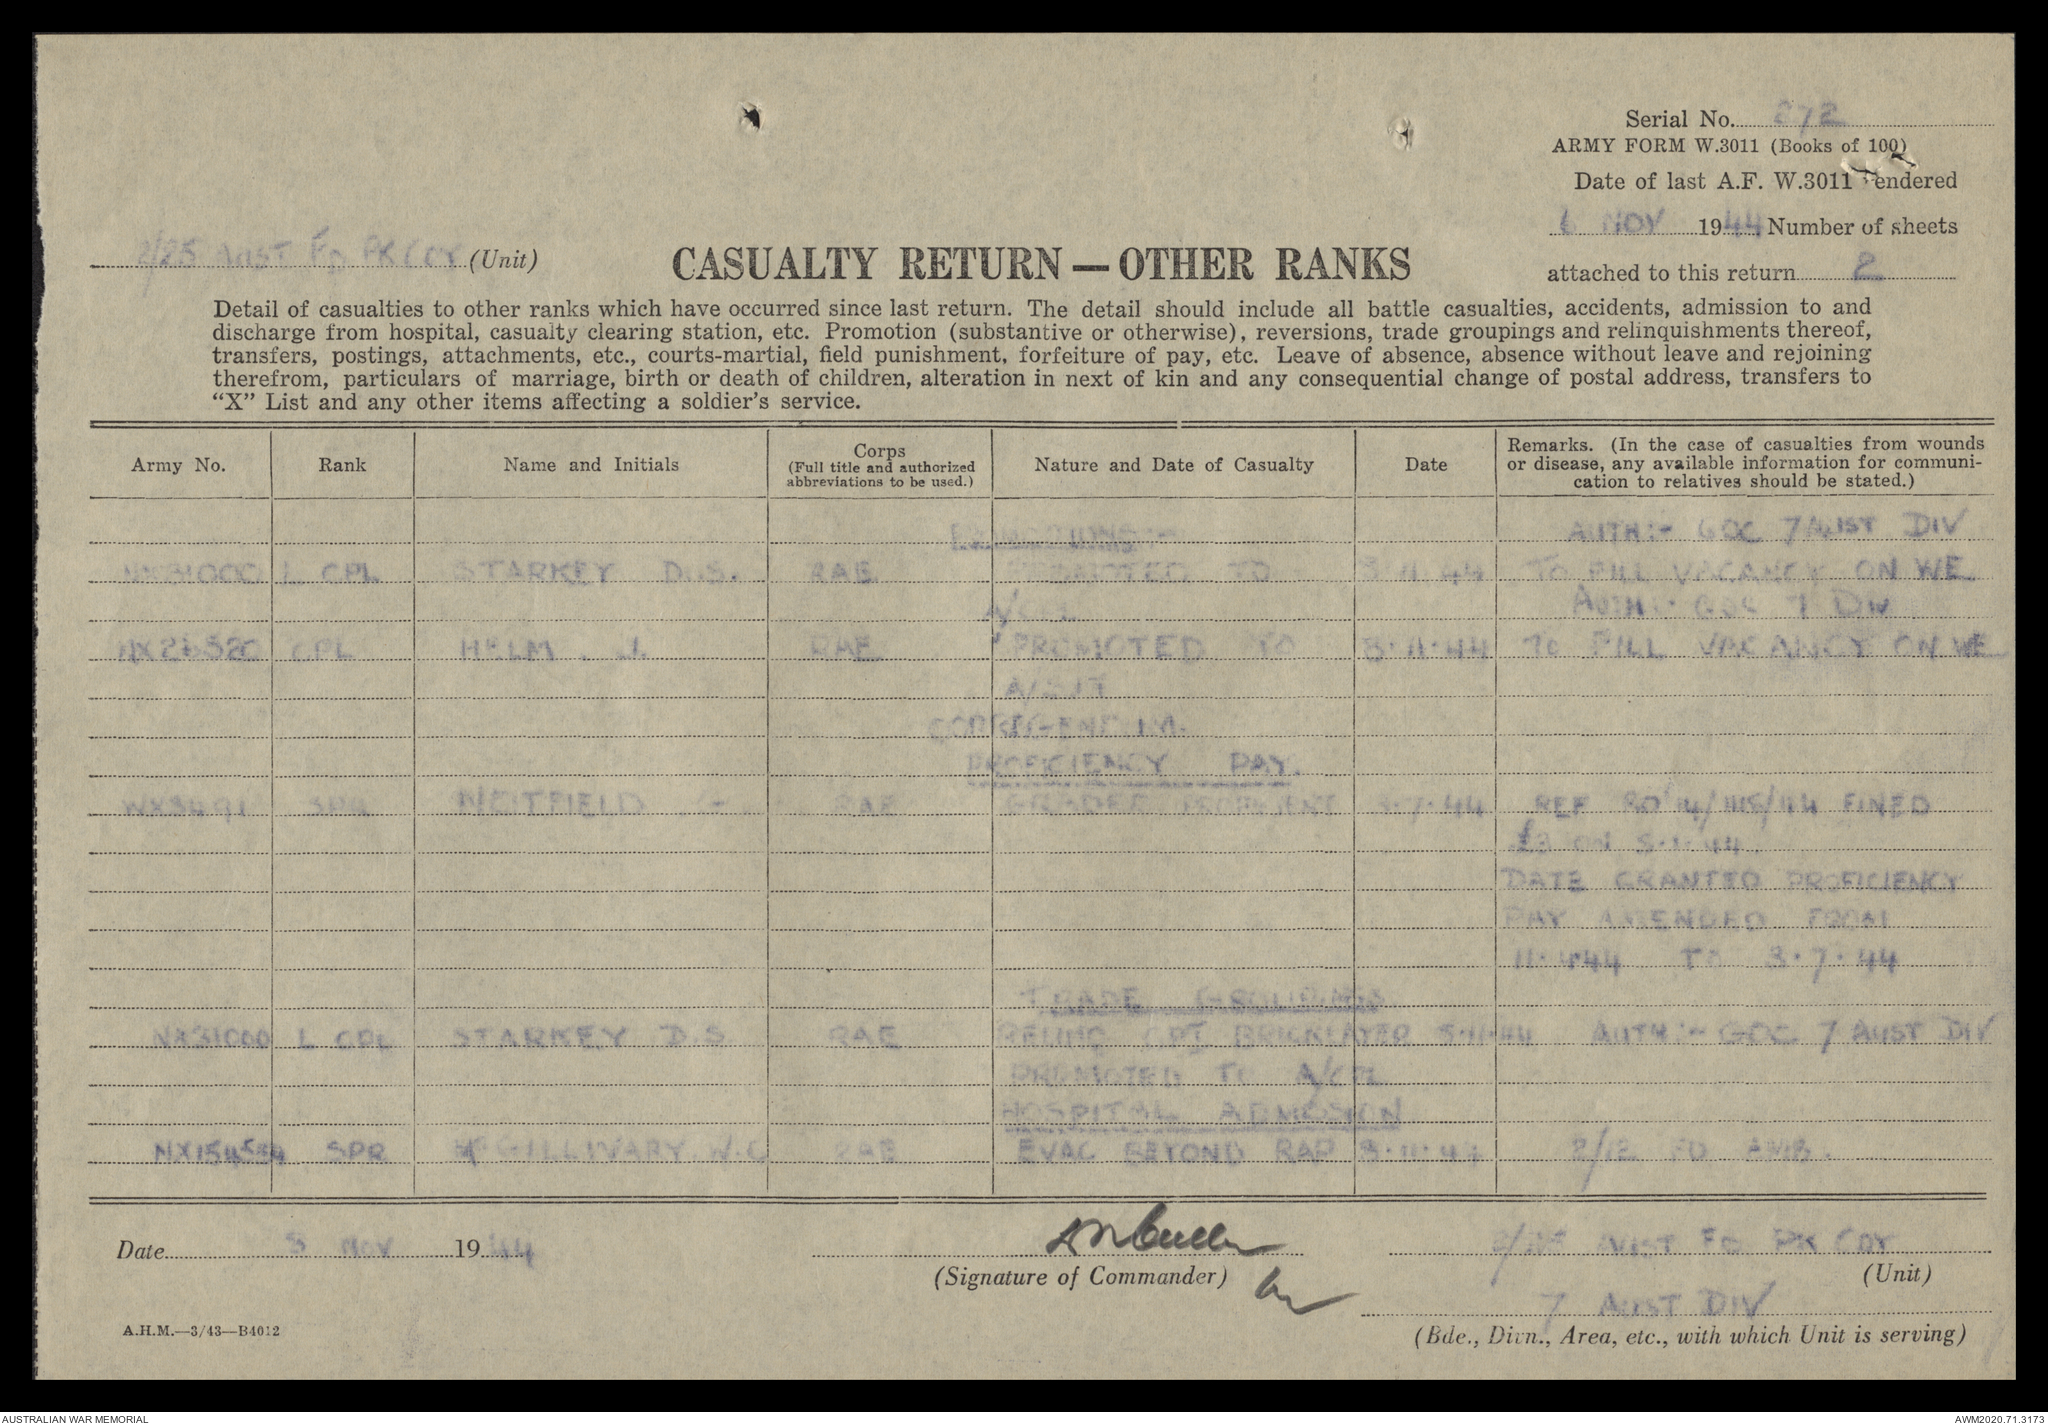 Serial No. 272
ARMY FORM W.3011 (Books of 100)
Date of last A.F. W.3011 rendered
6 NOV 1944 Number of sheets
attached to this return 2
2/25 AUST FD PK COY (Unit)
CASUALTY RETURN — OTHER RANKS
Detail of casualties to other ranks which have occurred since last return. The detail should include all battle casualties, accidents, admission to and
discharge from hospital, casualty clearing station, etc. Promotion (substantive or otherwise), reversions, trade groupings and relinquishments thereof,
transfers, postings, attachments, etc., courts-martial, field punishment, forfeiture of pay, etc. Leave of absence, absence without leave and rejoining
therefrom, particulars of marriage, birth or death of children, alteration in next of kin and any consequential change of postal address, transfers to
"X" List and any other items affecting a soldier's service.
Army No. Rank Name and Initials Corps (Full title and authorized abbreviations to be used.) Nature and Date of Casualty Date Remarks. (In the case of casualties from wounds or disease, any available information for communi- cation to relatives should be stated.)
PROMOTIONS:- AUTH:- GOC 7 AUST DIV
NX31000 L CPL STARKEY D.S. RAE PROMOTED TO 3.11.44 TO FILL VACANCY ON WE
A/CPL AUTH:- GOC 7 DIV
CPL HELM. J. RAE PROMOTED TO 3.11.44 TO FILL VACANCY ON WE
A/SJT
CORRIGENDUM.
PROFICIENCY PAY.
WX3491 SPR RAE PROFICIENT 3.7.44 REF RO FINED
£3 ON
DATE GRANTED PROFICIENCY
PAY AMENDED FROM
11.4.44 TO 3.7.44
TRADE GROUPINGS
NX31000 L CPL STARKEY D.S. RAE RELINQ GPI BRICKLAYER 3.11.44 AUTH:- GOC 7 AUST DIV
PROMOTED TO A/CPL
HOSPITAL ADMISSION
SPR McGILLIVARY. W.C RAE EVAC BEYOND RAP 3.11.44 2/12 FD AMB.
Date 8 NOV 1944
(Signature of Commander)
2/25 AUST FD PK COY
(Unit)
7 AUST DIV
(Bde., Divn., Area, etc., with which Unit is serving)
A.H.M.—3/43—B4012
AUSTRALIAN WAR MEMORIAL AWM2020.71.3173